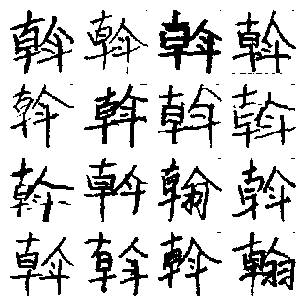 斡斡斡斡
斡斡斡斡
斡斡翰斡
斡斡斡翰